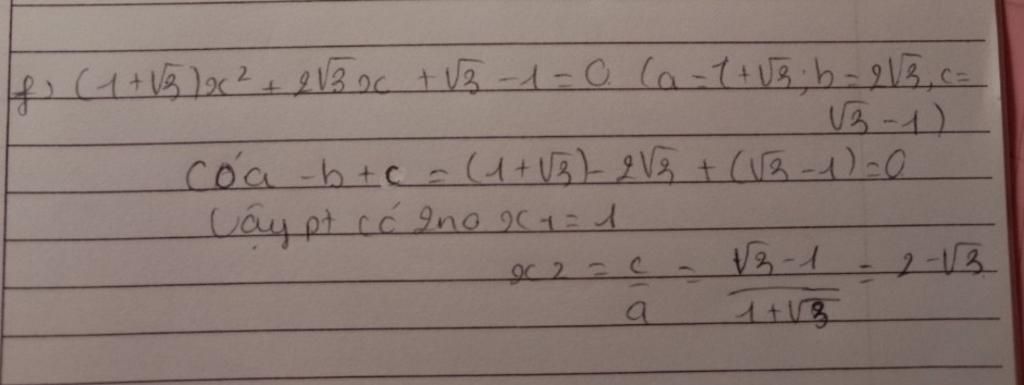 f) (1+√3)x² + 2√3x + √3 - 1 = 0 (a = 1+√3; b = 2√3, c =
√3 - 1)
Có a - b + c = (1+√3) - 2√3 + (√3 - 1) = 0
Vậy pt có 2no x1 = 1
x2 = c/a = (√3 - 1)/(1+√3) = 2 - √3